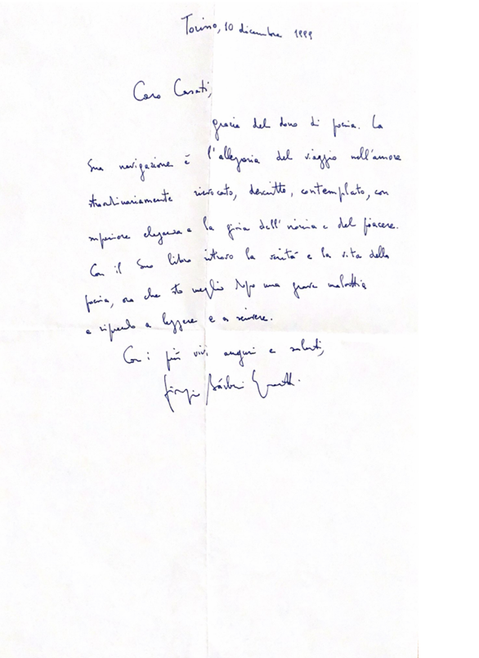 Torino, 10 dicembre 1999
Caro Casati,
grazie del dono di poesia. La
Sua navigazione è l'allegoria del viaggio nell'amore
straordinariamente rievocato, descritto, contemplato, con
superiore eleganza e la gioia dell' e del piacere.
Con il Suo libro ritrovo la verità e la vita della
poesia, ora che sto meglio dopo una grave malattia
e riprendo a leggere e a scrivere.
Con i più vivi auguri e saluti,
Giorgio Bárberi Squarotti.